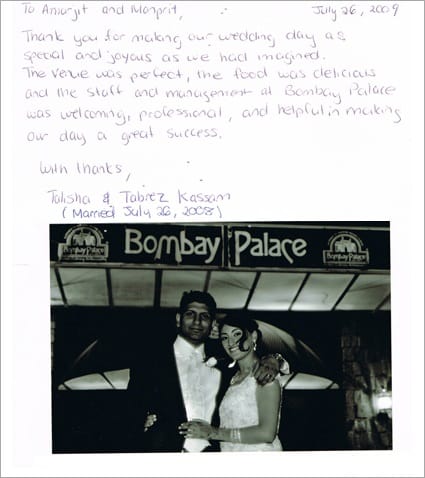 To Amarjit and Manprit, July 26, 2009
Thank you for making our wedding day as
special and joyous as we had imagined.
The venue was perfect, the food was delicious
and the staff and management at Bombay Palace
was welcoming, professional, and helpful in making
our day a great success.
With thanks,
Talisha & Tabrez Kassam
(Married July 26, 2008)
Bombay Palace
Bombay Palace
Bombay Palace